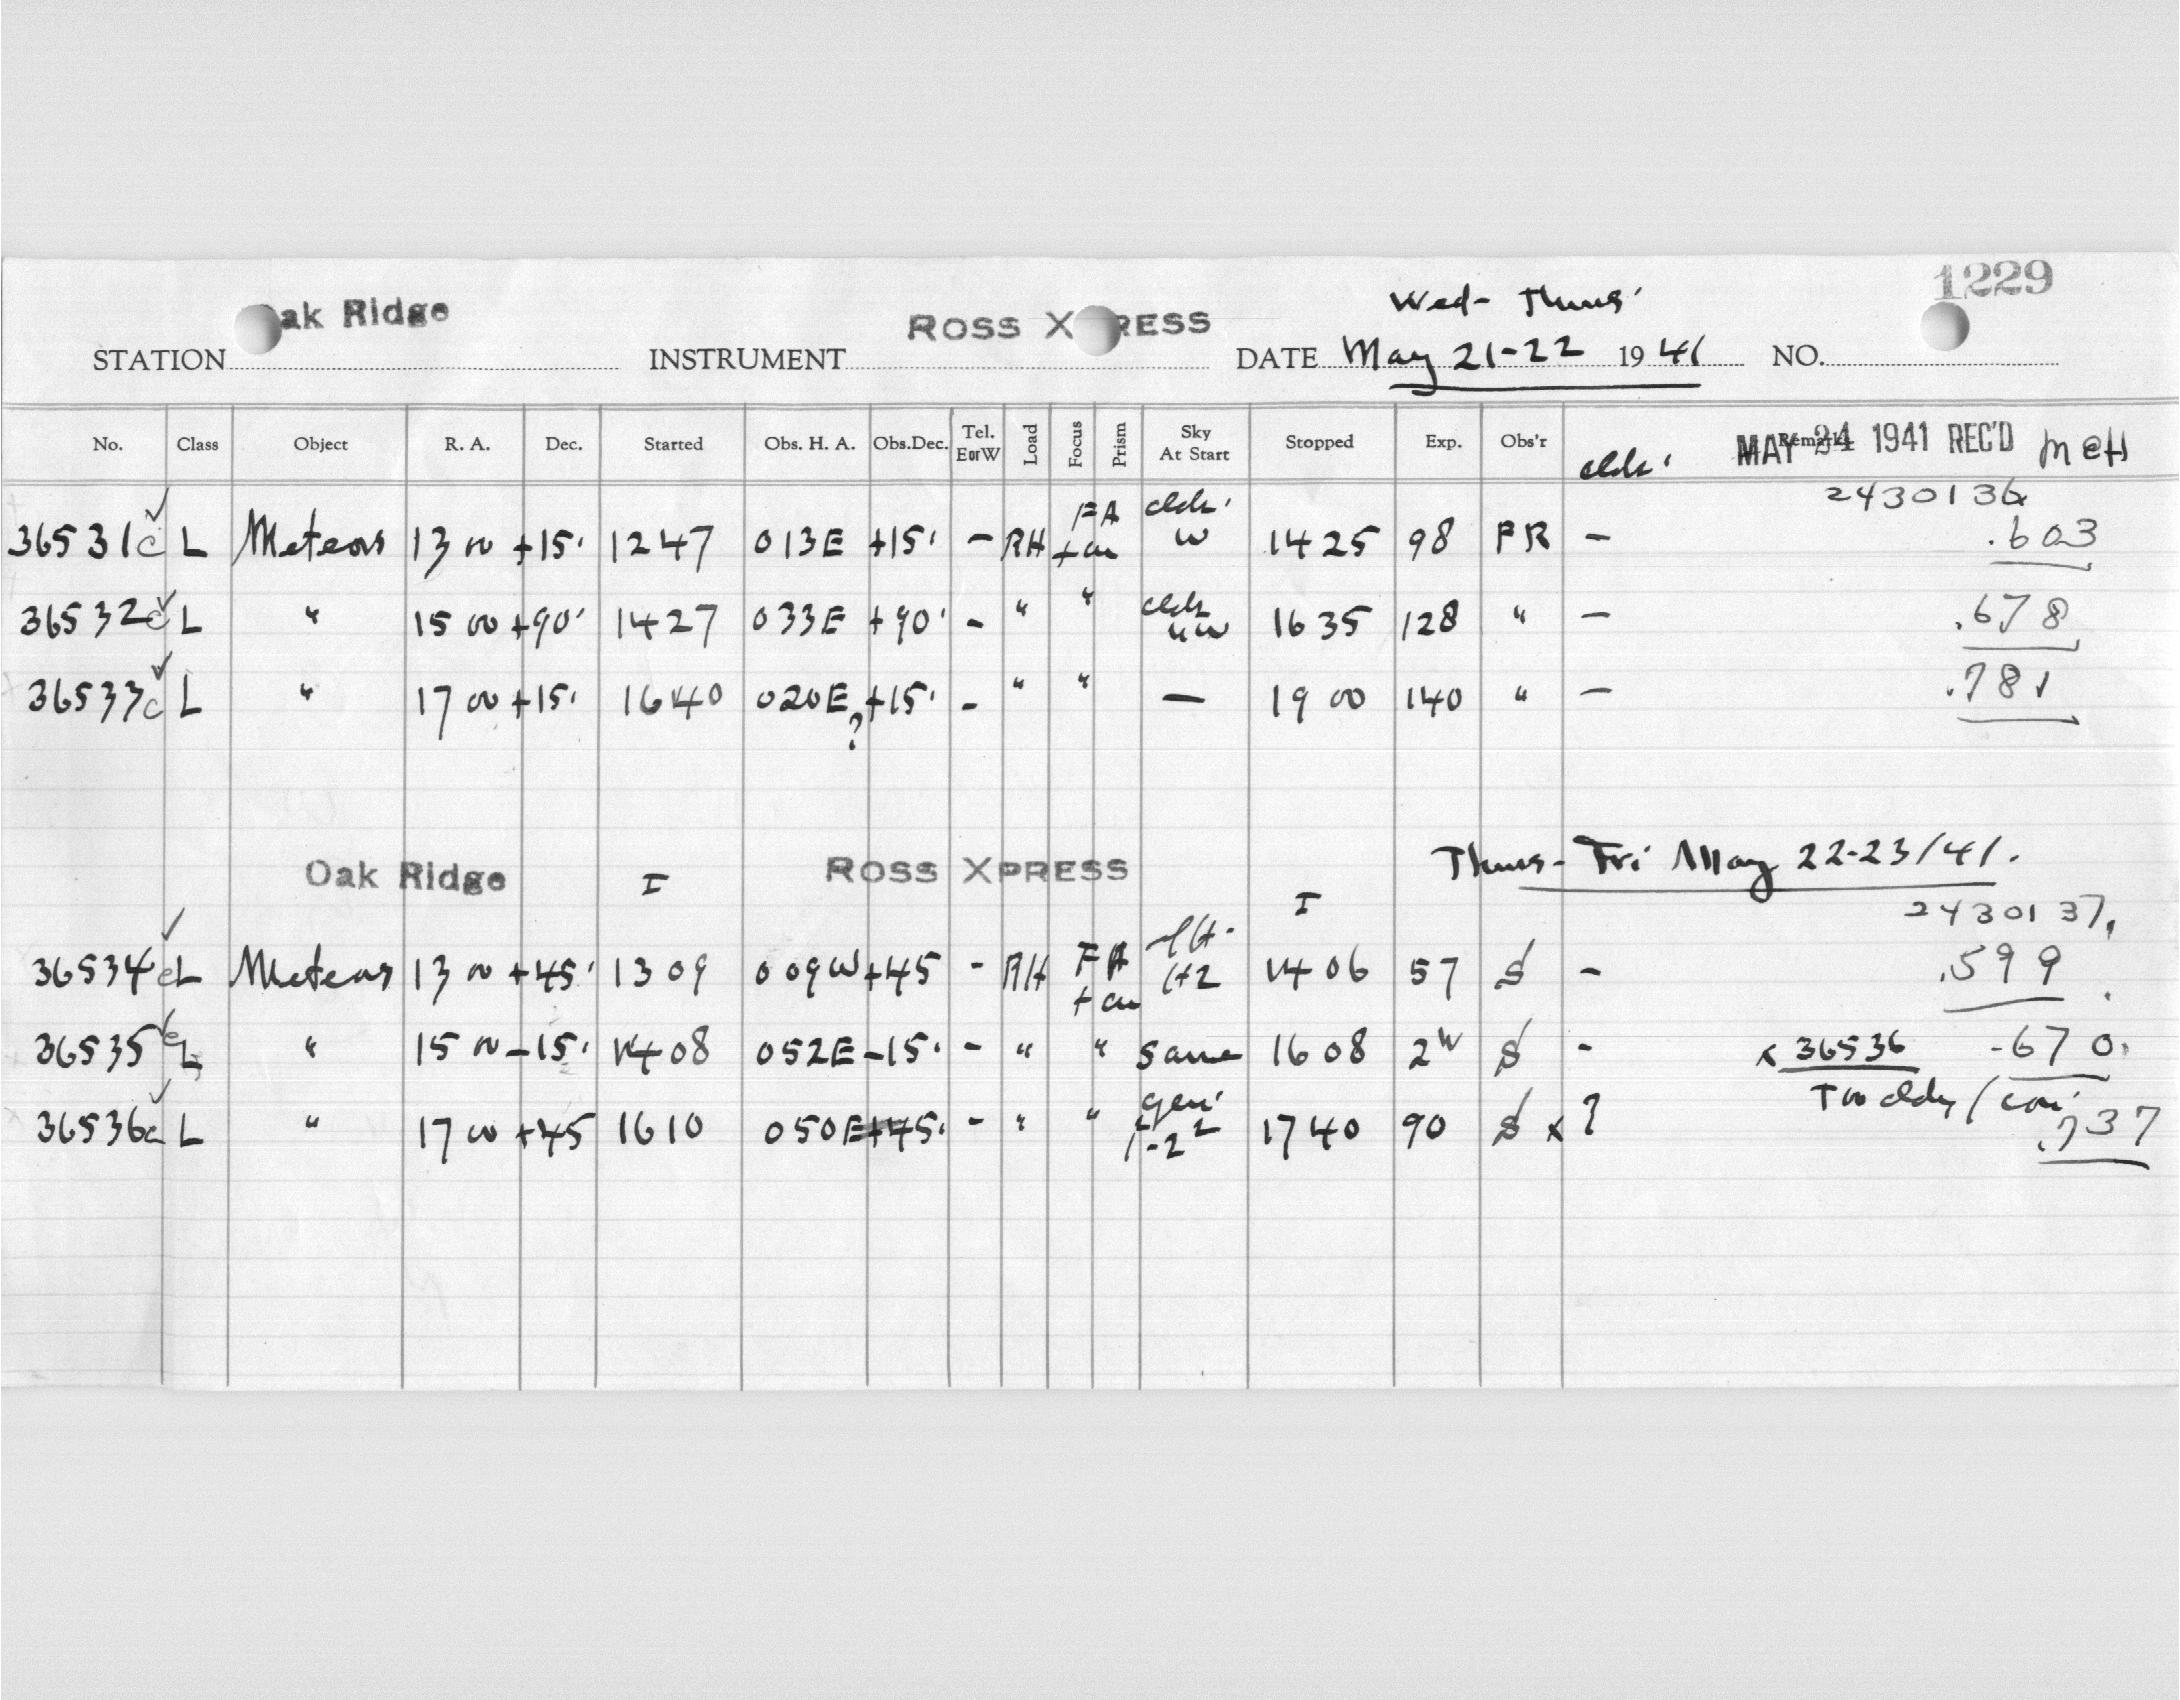 1229
Wed- Thurs'
STATION Oak Ridge INSTRUMENT ROSS XPRESS DATE May 21-22 1941 NO.
No. Class Object R. A. Dec. Started Obs. H. A. Obs.Dec. Tel. EorW Load Focus Prism Sky At Start Stopped Exp. Obs'r Remarks
clds' MAY 24 1941 REC'D MCH
2430136
36531c L Meteors 13 00 +15' 1247 013E +15' - RH FA clds' W 1425 98 FR - .603
36532c L " 15 00 +90' 1427 033E +90' - " " clds NW 1635 128 " - .678
36533c L " 17 00 +15' 1640 020E? +15' - " " — 19 00 140 " - .781
Thurs- Fri May 22-23/41.
Oak Ridge I ROSS XPRESS I
2430137.
36534c L Meteors 13 00 +45' 1309 009W +45 - RH FA 1406 57 S - .599
36535c L " 15 00 -15' 1408 052E -15' - " " same 1608 2H S - x 36536 .670
36536c L " 17 00 +45 1610 050E +45' - " " 1-2 1740 90 S x ? .737